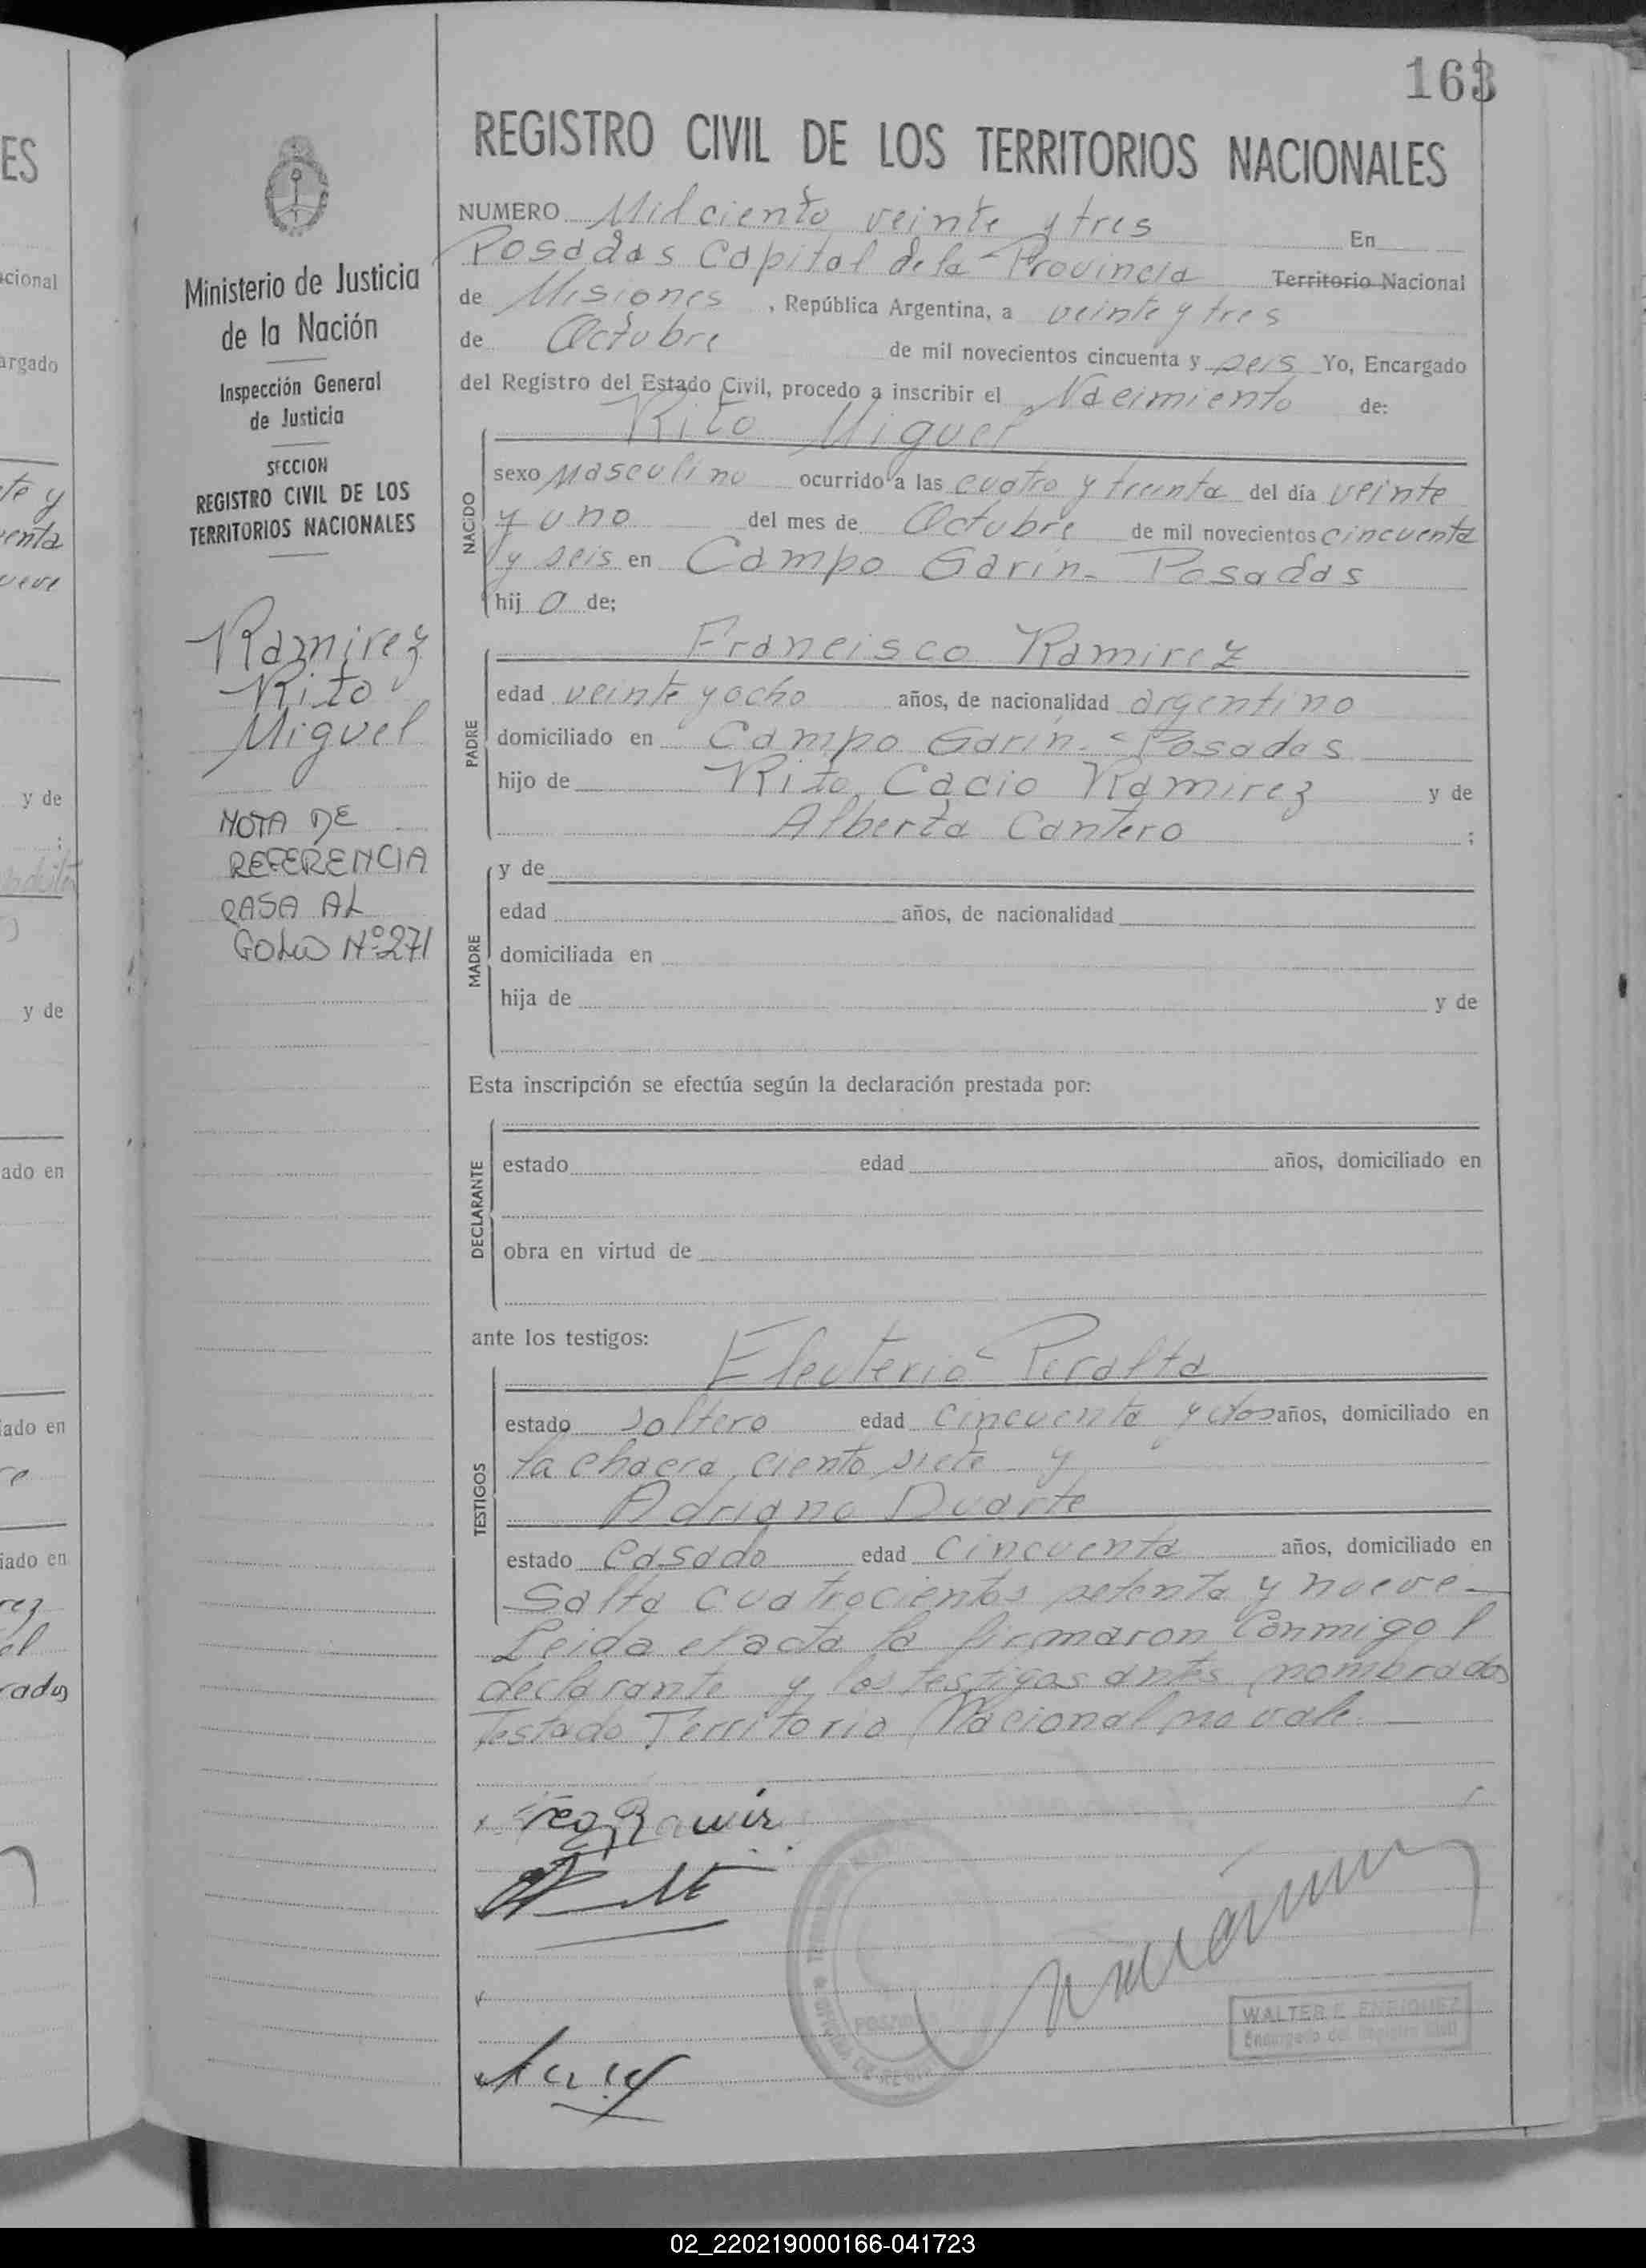 163
REGISTRO CIVIL DE LOS TERRITORIOS NACIONALES
Ministerio de Justicia
de la Nación
Inspección General
de Justicia
SECCION
REGISTRO CIVIL DE LOS
TERRITORIOS NACIONALES
Ramirez
Rito
Miguel
NOTA DE
REFERENCIA
PASA AL
FOLIO Nº 271
NUMERO Mil ciento veinte y tres En
Posadas Capital de la Provincia Territorio Nacional
de Misiones, República Argentina, a veinte y tres
de Octubre de mil novecientos cincuenta y seis Yo, Encargado
del Registro del Estado Civil, procedo a inscribir el Nacimiento de:
Rito Miguel
NACIDO
sexo masculino ocurrido a las cuatro y treinta del día veinte
y uno del mes de Octubre de mil novecientos cincuenta
y seis en Campo Garin - Posadas
hijo de;
Francisco Ramirez
PADRE
edad veinte y ocho años, de nacionalidad argentino
domiciliado en Campo Garin - Posadas
hijo de Rito Cacio Ramirez y de
Alberta Cantero ;
MADRE
y de
edad años, de nacionalidad
domiciliada en
hija de y de
Esta inscripción se efectúa según la declaración prestada por:
DECLARANTE
estado edad años, domiciliado en
obra en virtud de
ante los testigos:
Eleuterio Peralta
TESTIGOS
estado soltero edad cincuenta y dos años, domiciliado en
la chacra ciento siete y
Adriano Duarte
estado casado edad cincuenta años, domiciliado en
Salta cuatrocientos setenta y nueve -
Leida el acta la firmaron conmigo l
declarante y los testigos antes nombrados
Testado Territorio Nacional no vale. -
POSADAS
WALTER E. ENRIQUEZ
Encargado del Registro Civil
02_220219000166-041723